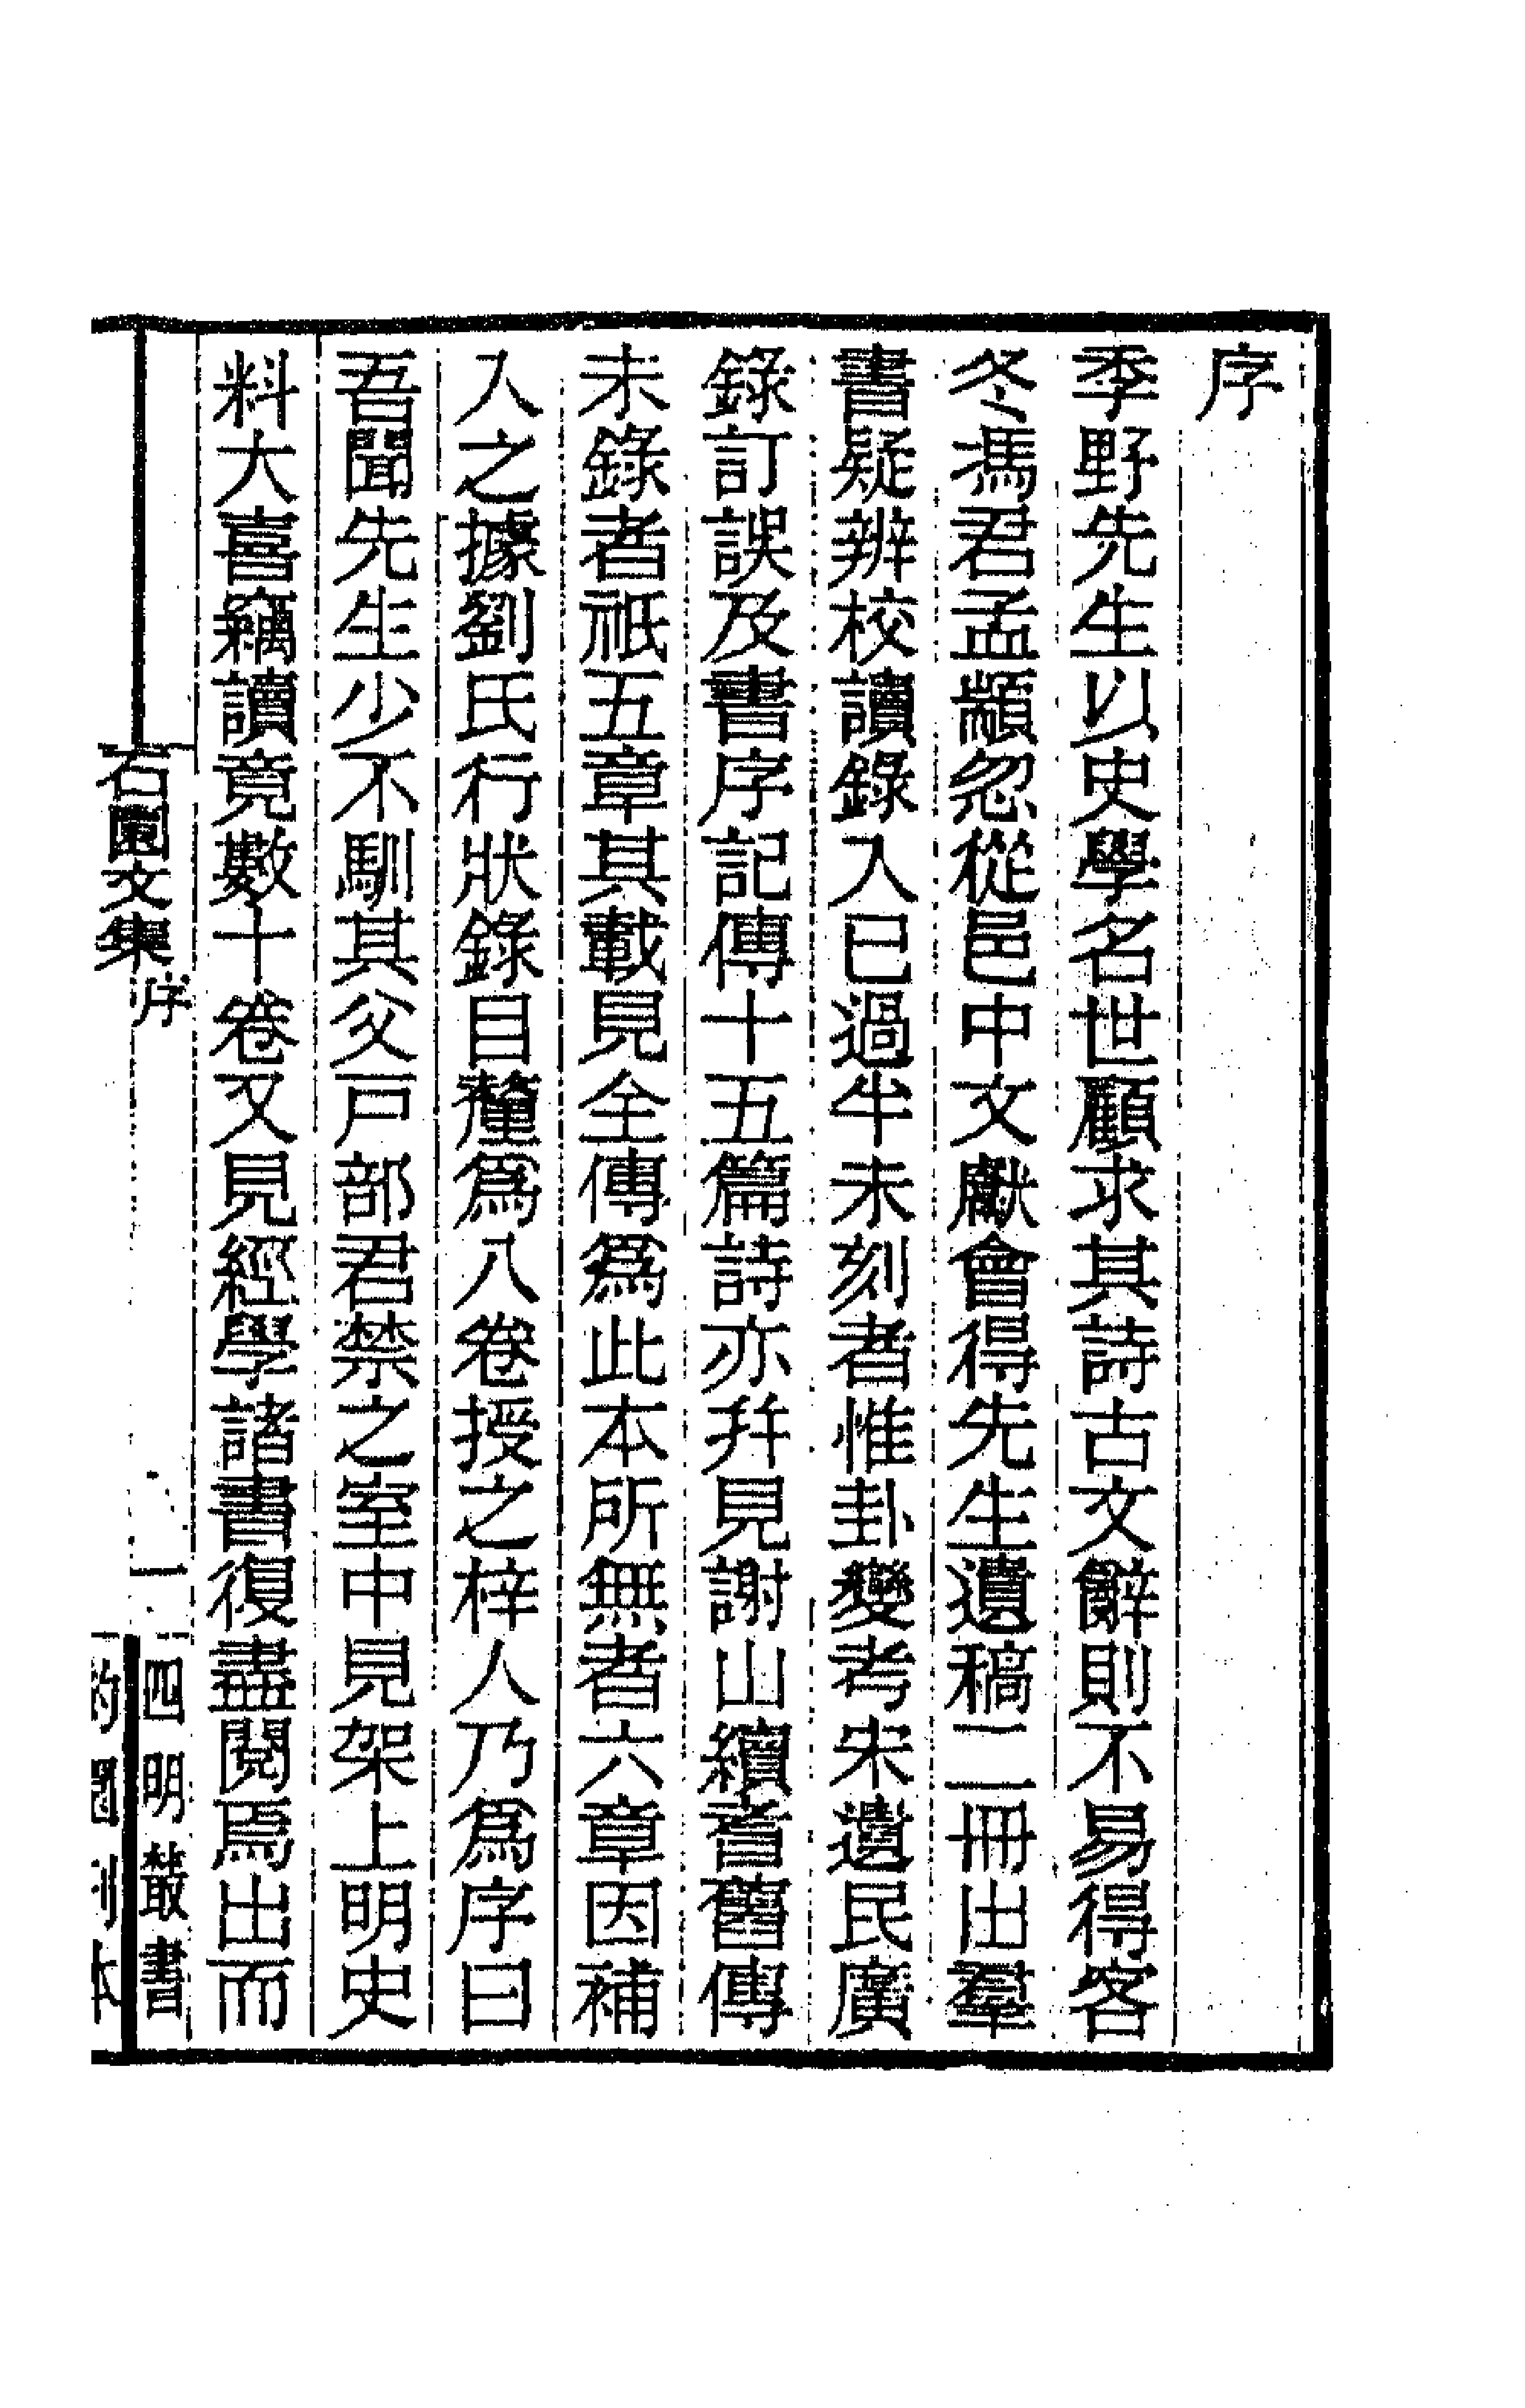 序
季野先生以史學名世顧求其詩古文辭則不易得客
冬馮君孟顓忽從邑中文獻會得先生遺稿二冊出羣
書疑辨校讀錄入已過半未刻者惟卦變考宋遺民廣
錄訂誤及書序記傳十五篇詩亦幷見謝山續耆舊傳
未錄者祇五章其載見全傳爲此本所無者六章因補
入之據劉氏行狀錄目釐爲八卷授之梓人乃爲序曰
吾聞先生少不馴其父戶部君禁之室中見架上明史
料大喜竊讀竟數十卷又見經學諸書復盡閱焉出而
石園文集 序
一
四明叢書
約園刊本